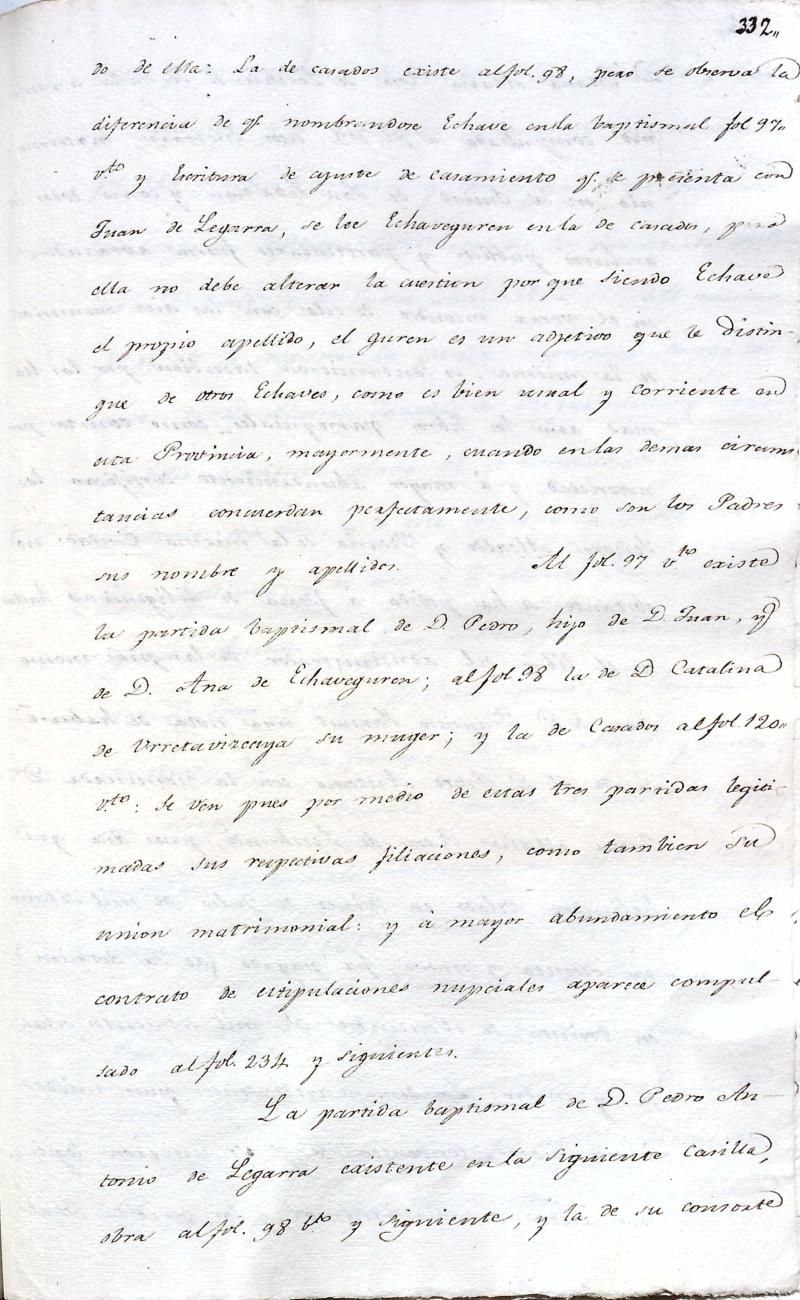 332,,
do de ella: La de casados existe al fol. 98, pero se observa la
diferencia de qe. nombrandose Echave en la baptismal fol 97,,
v.to y Escritura de ajuste de casamiento qe. se presenta con
Juan de Legarra, se lee Echaveguren en la de casados, pero
ella no debe alterar la cuestion por que siendo Echave
el propio apellido, el guren es un adjetivo que le distin-
gue de otros Echaves, como es bien usual y corriente en
esta Provincia, mayormente, cuando en las demas circuns
tancias concuerdan perfectamente, como son los Padres
sus nombre y apellidos. Al fol. 97 v.to existe
la partida baptismal de D. Pedro, hijo de D. Juan, y
de D. Ana de Echaveguren; al fol 98 la de D Catalina
de Urretavizcaya su muger; y la de Casados al fol. 120,,
v.to: se ven pues por medio de estas tres partidas legiti-
madas sus respectivas filiaciones, como tambien su
union matrimonial: y à mayor abundamiento el
contrato de estipulaciones nupciales aparece compul-
sado al fol. 234 y siguientes.
La partida baptismal de D. Pedro An-
tonio de Legarra existente en la siguiente Casilla,
obra al fol. 98 bto y siguiente, y la de su consorte